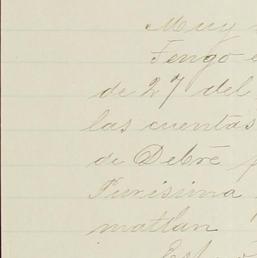 Muy
Tengo
de 27 del
las cuentas
de Debre
Purisima
matlan